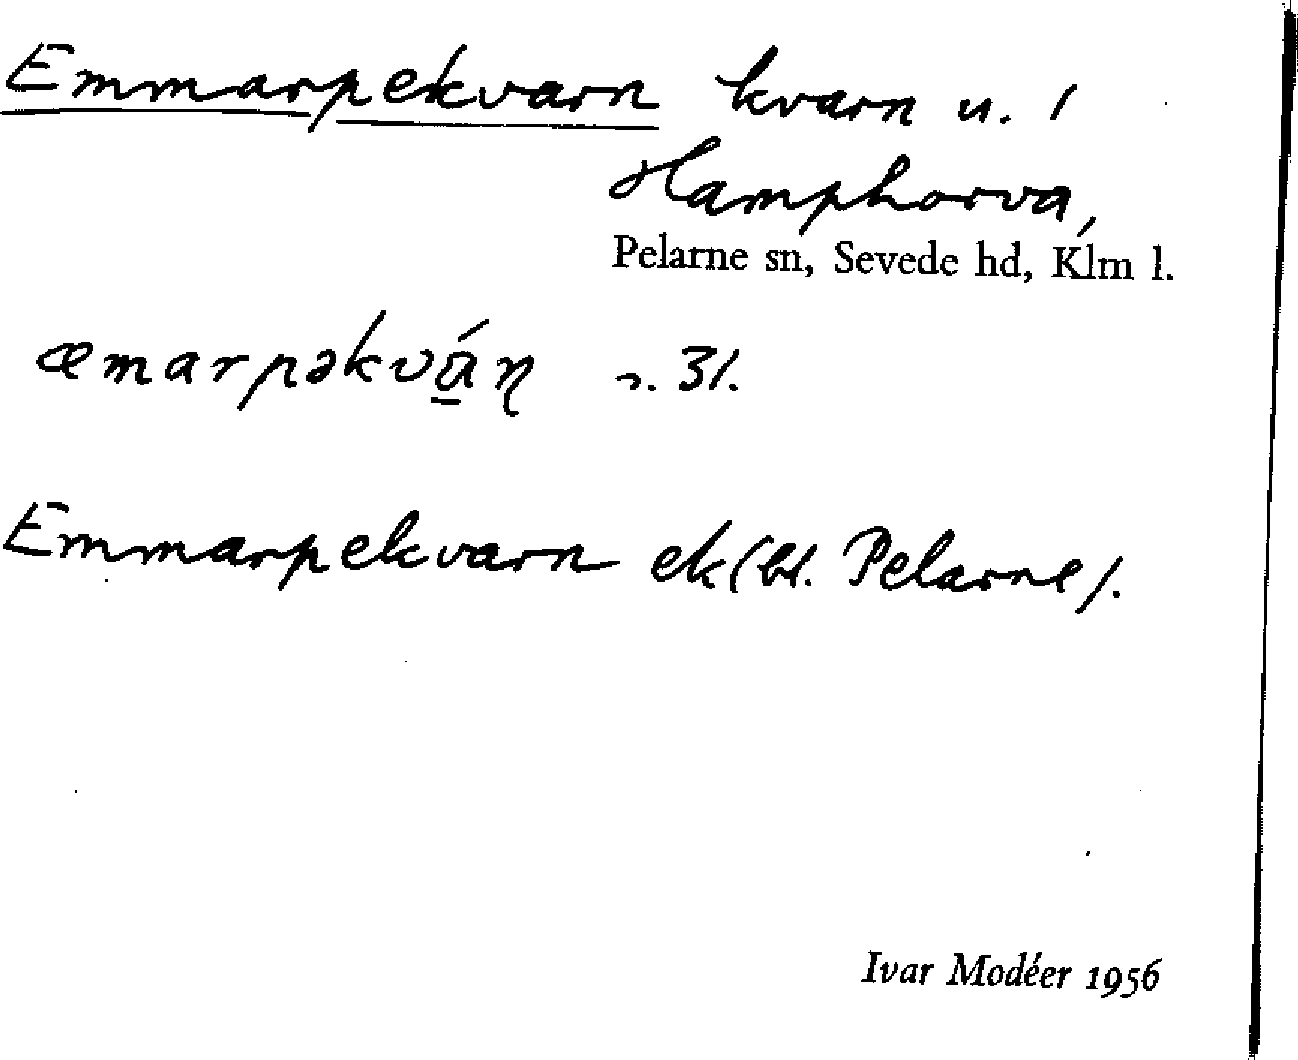 Emmarpekvarn kvarn u. 1
Hamphorva,
Pelarne sn, Sevede hd, Klm l.
æmarpəkvá̱ɳ n. 31.
Emmarpekvarn ek (bl. Pelarne).
Ivar Modéer 1956